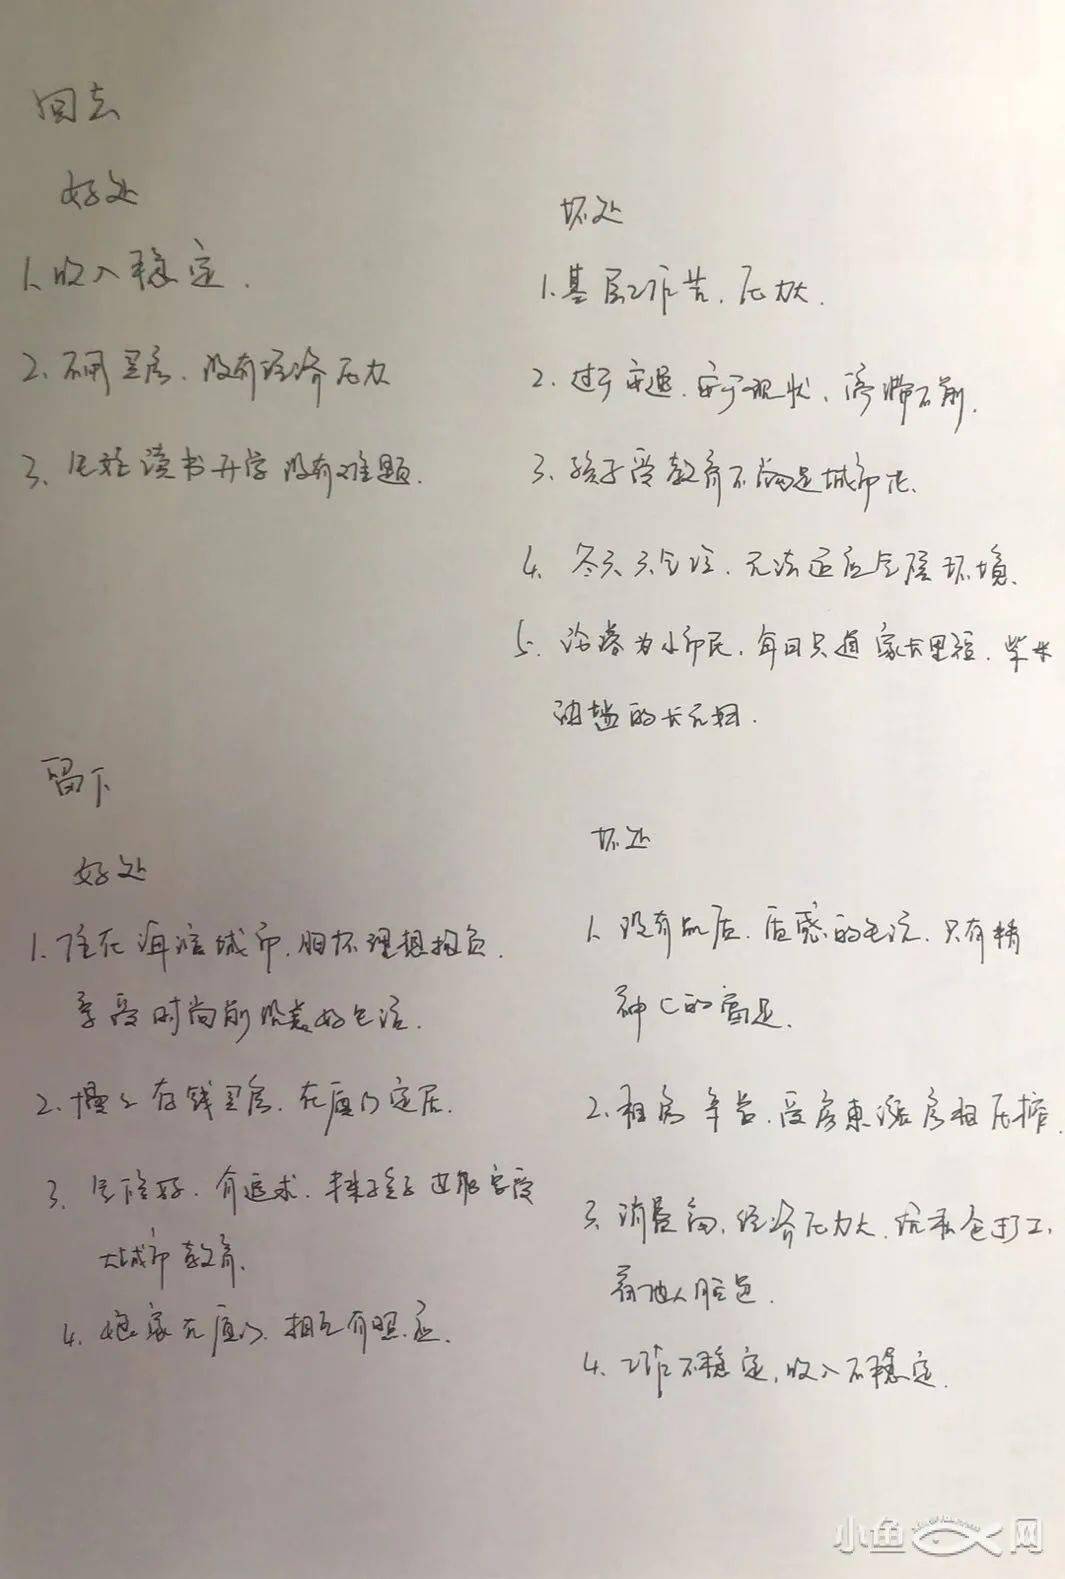 回去
好处
1、收入稳定.
2、不用买房、没有经济压力
3、读书开学没有难题.
坏处
1、基层工作苦、压力大.
2、过于安逸、安于现状、停滞不前.
3、孩子受教育不满足城市化.
4、冬天太冷、无法适应气候环境.
5、沦落为小市民、每日只道家长里短、柴米
油盐的长短.
留下
好处
1、住在海滨城市、胸怀理想抱负、
享受时尚前沿美好生活.
2、慢慢存钱买房、在厦门定居.
3、有追求、孩子也能享受
大城市教育.
4、娘家在厦门、相互有照应.
坏处
1、没有品质、质感的生活、只有精
神上的富足.
2、租房辛苦、受房东涨房租压榨.
3、消费高、经济压力大、打工、
看他人脸色.
4、工作不稳定、收入不稳定.
小鱼网